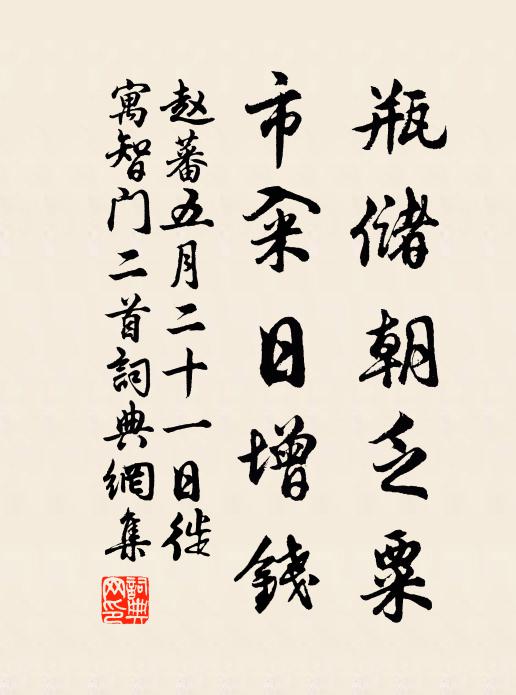 瓶儲朝乏粟
市籴日增錢
赵蕃五月二十一日徙
寓智门二首詞典網集
詞典
网印